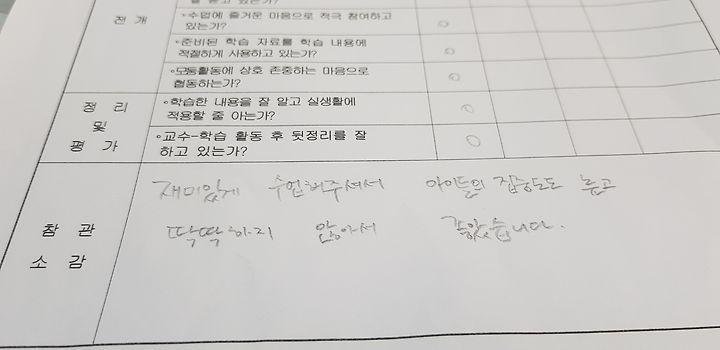 전 개
◦수업에 즐거운 마음으로 적극 참여하고
있는가?
◦준비된 학습 자료를 학습 내용에
적절하게 사용하고 있는가?
◦모둠활동에 상호 존중하는 마음으로
협동하는가?
정 리
및
평 가
◦학습한 내용을 잘 알고 실생활에
적용할 줄 아는가?
◦교수-학습 활동 후 뒷정리를 잘
하고 있는가?
참 관
소 감
재미있게 수업해주셔서 아이들의 집중도도 높고
딱딱하지 않아서 좋았습니다.